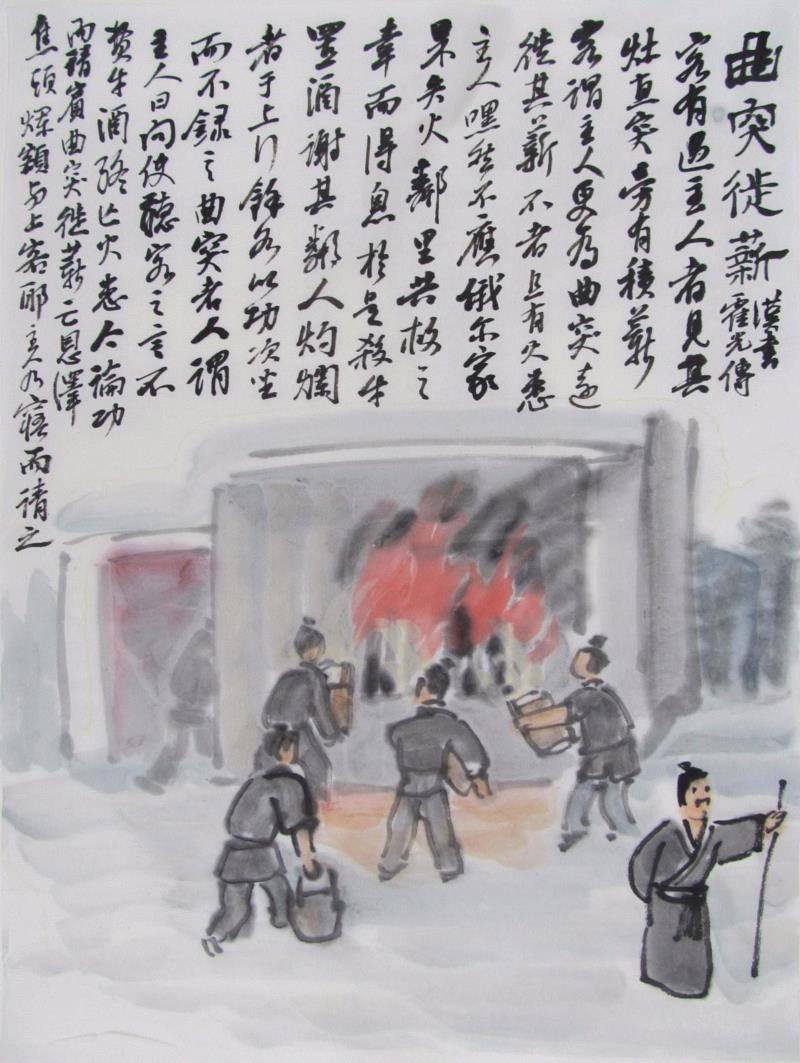 曲突徙薪
漢書
霍光傳
客有過主人者見其
灶直突旁有積薪
客謂主人更为曲突遠
徙其薪不者且有火患
主人嘿然不應俄尔家
果失火鄰里共救之
幸而得息於是殺牛
置酒謝其鄰人灼爛
者于上行餘各以功次坐
而不録之曲突者人謂
主人曰向使聽客之言不
费牛酒終亡火患今論功
而請賓曲突徙薪亡恩澤
焦頭爛額为上客耶主人乃寤而請之